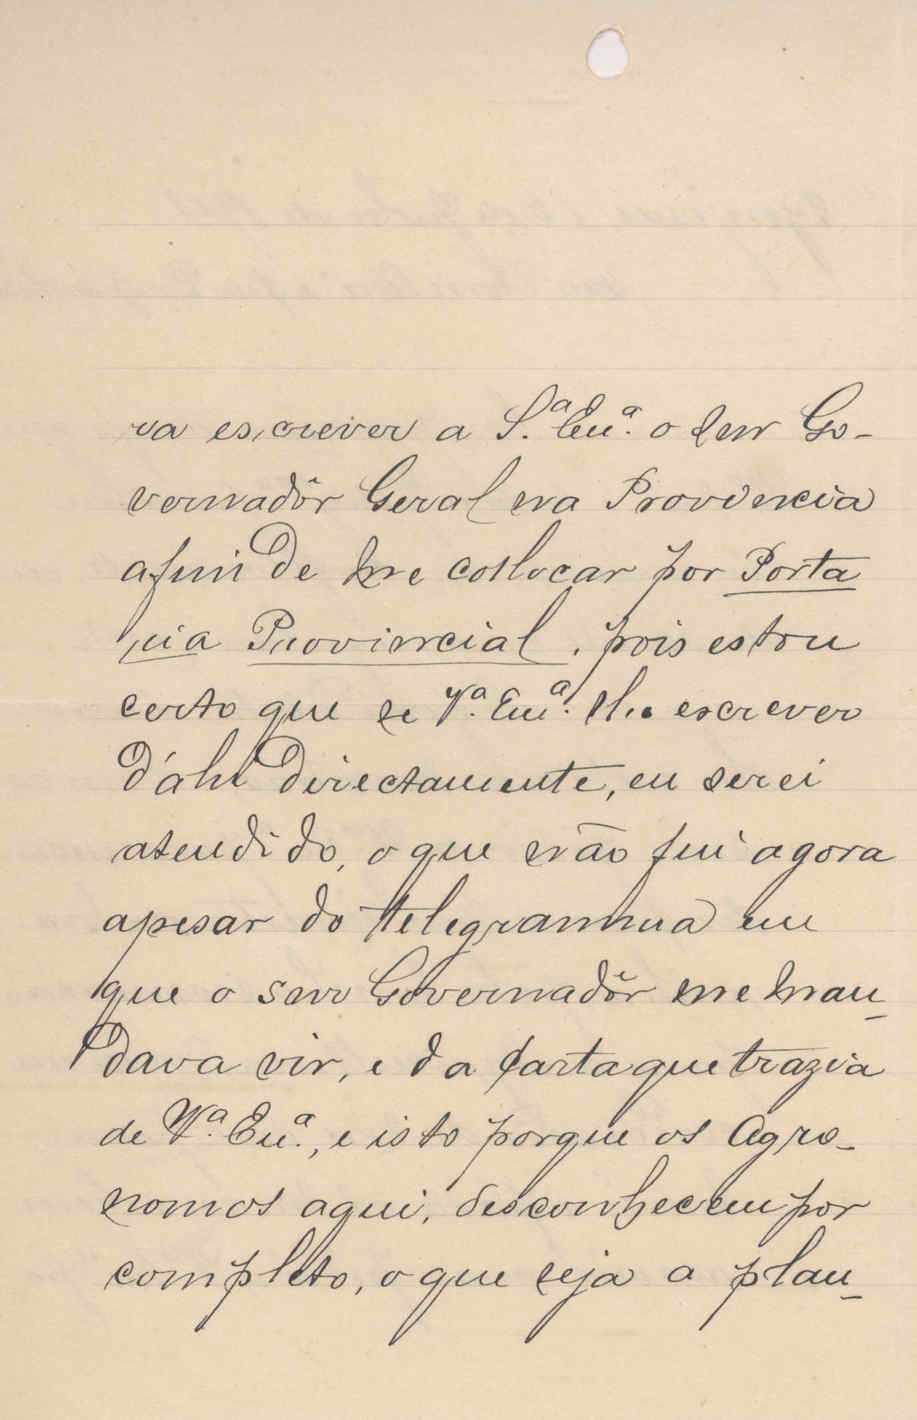 va escrever a S.ª Exª. o Snr Go-
vernadôr Geral na Provincia
afim de me collocar por Porta
ria Provincial, pois estou
certo que se Vª. Exª. lhe escrever
d'ahi directamente, eu serei
atendido, o que não fui agora
apesar do telegramma em
que o snr Governadôr me man-
dava vir, e da Carta que trazia
de Vª. Exª., e isto porque os Agro-
nomos aqui, desconhecem por
completo, o que seja a plan-